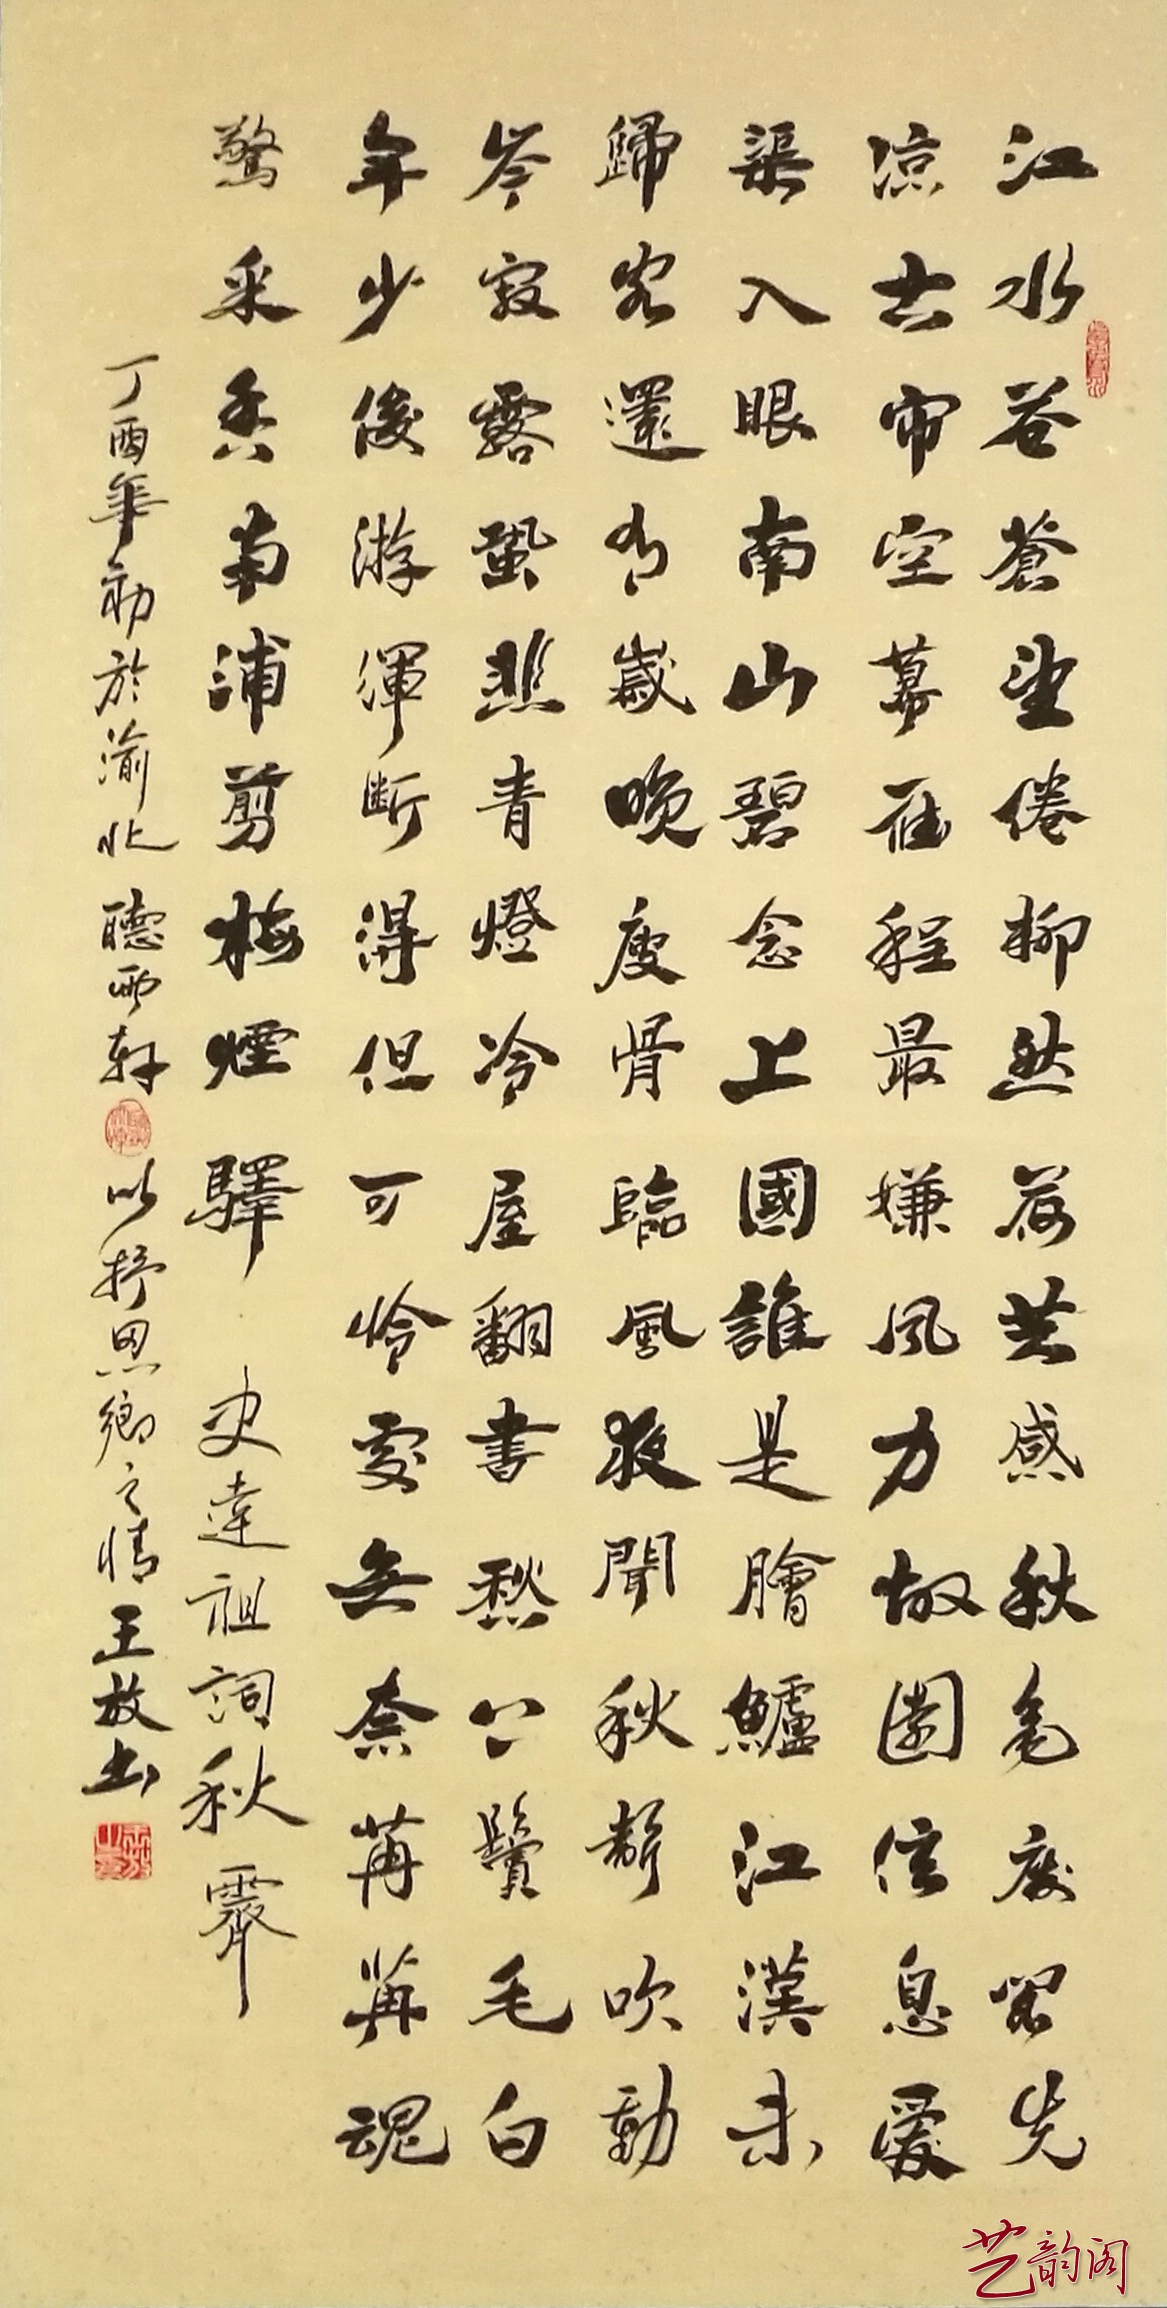 江水蒼蒼望倦柳愁荷共感秋色廢閣先
涼古帘空暮雁程最嫌風力故園信息愛
渠入眼南山碧念上國誰是膾鱸江漢未
歸客還又歲晚瘦骨臨風夜聞秋聲吹動
岑寂露蛩悲青燈冷屋翻書愁上鬢毛白
年少俊游渾斷得但可怜處無奈苒苒魂
驚采香南浦剪梅煙驛 史達祖詞秋霽
丁酉年初於渝北聽雨軒 以抒思鄉之情王放書
艺韵阁